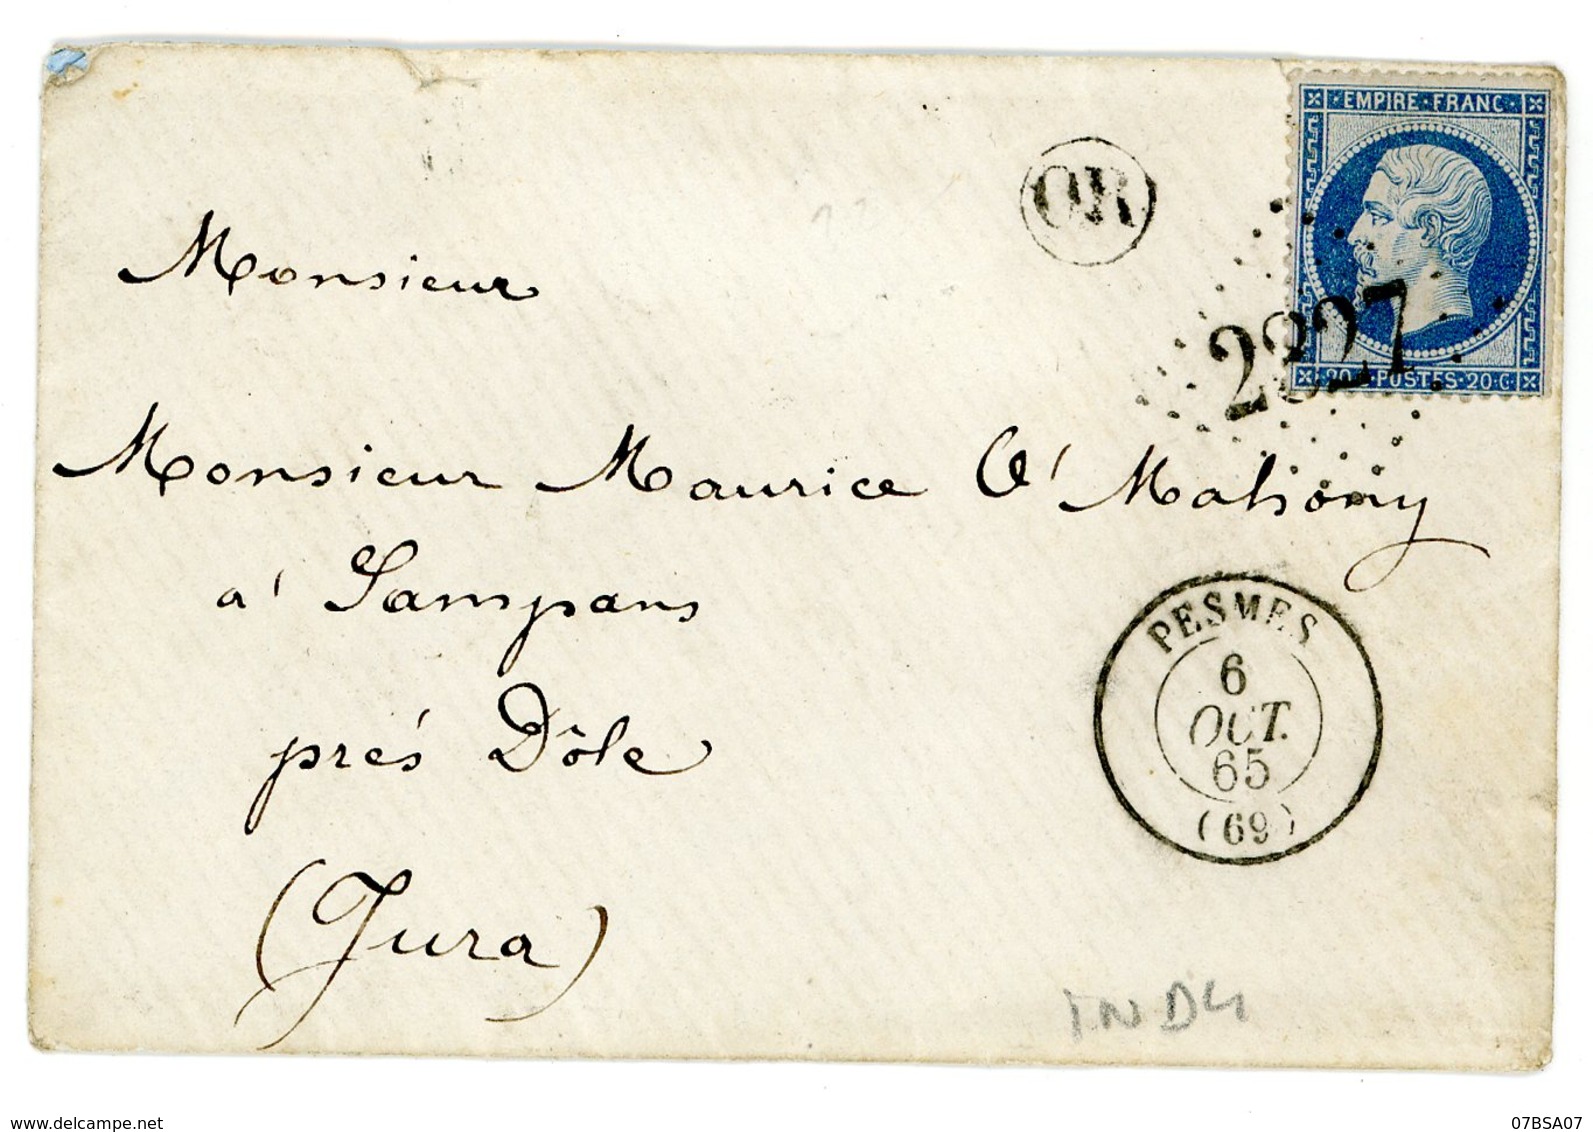 EMPIRE · FRANC
OR
Monsieur
2827
20 c · POSTES · 20 · C
Monsieur Maurice O' Mahony
a' Sampans
prés Dôle
(Jura)
PESMES
6
OCT.
65
(69)
INDG
www.delcampe.net
07BSA07